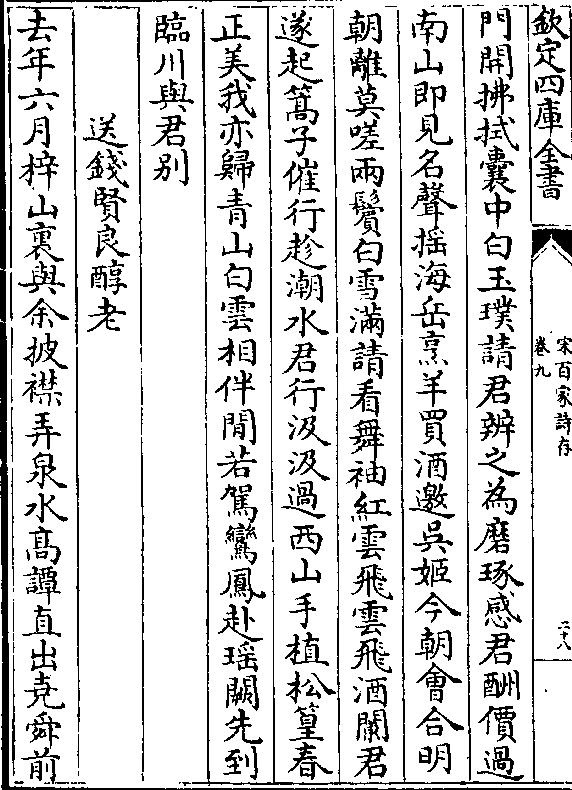 欽定四庫全書
宋百家詩存
卷九
二十八
門開拂拭囊中白玉璞請君辨之為磨琢感君酬價過
南山即見名聲揺海岳烹羊買酒邀吳姬今朝會合明
朝離莫嗟兩鬢白雪滿請看舞袖紅雲飛雲飛酒闌君
遂起篙子催行趁潮水君行汲汲過西山手植松篁春
正美我亦歸青山白雲相伴閒若駕鸞鳳赴瑶闕先到
臨川與君别
送錢賢良醇老
去年六月梓山裏與余披襟弄泉水髙譚直出堯舜前